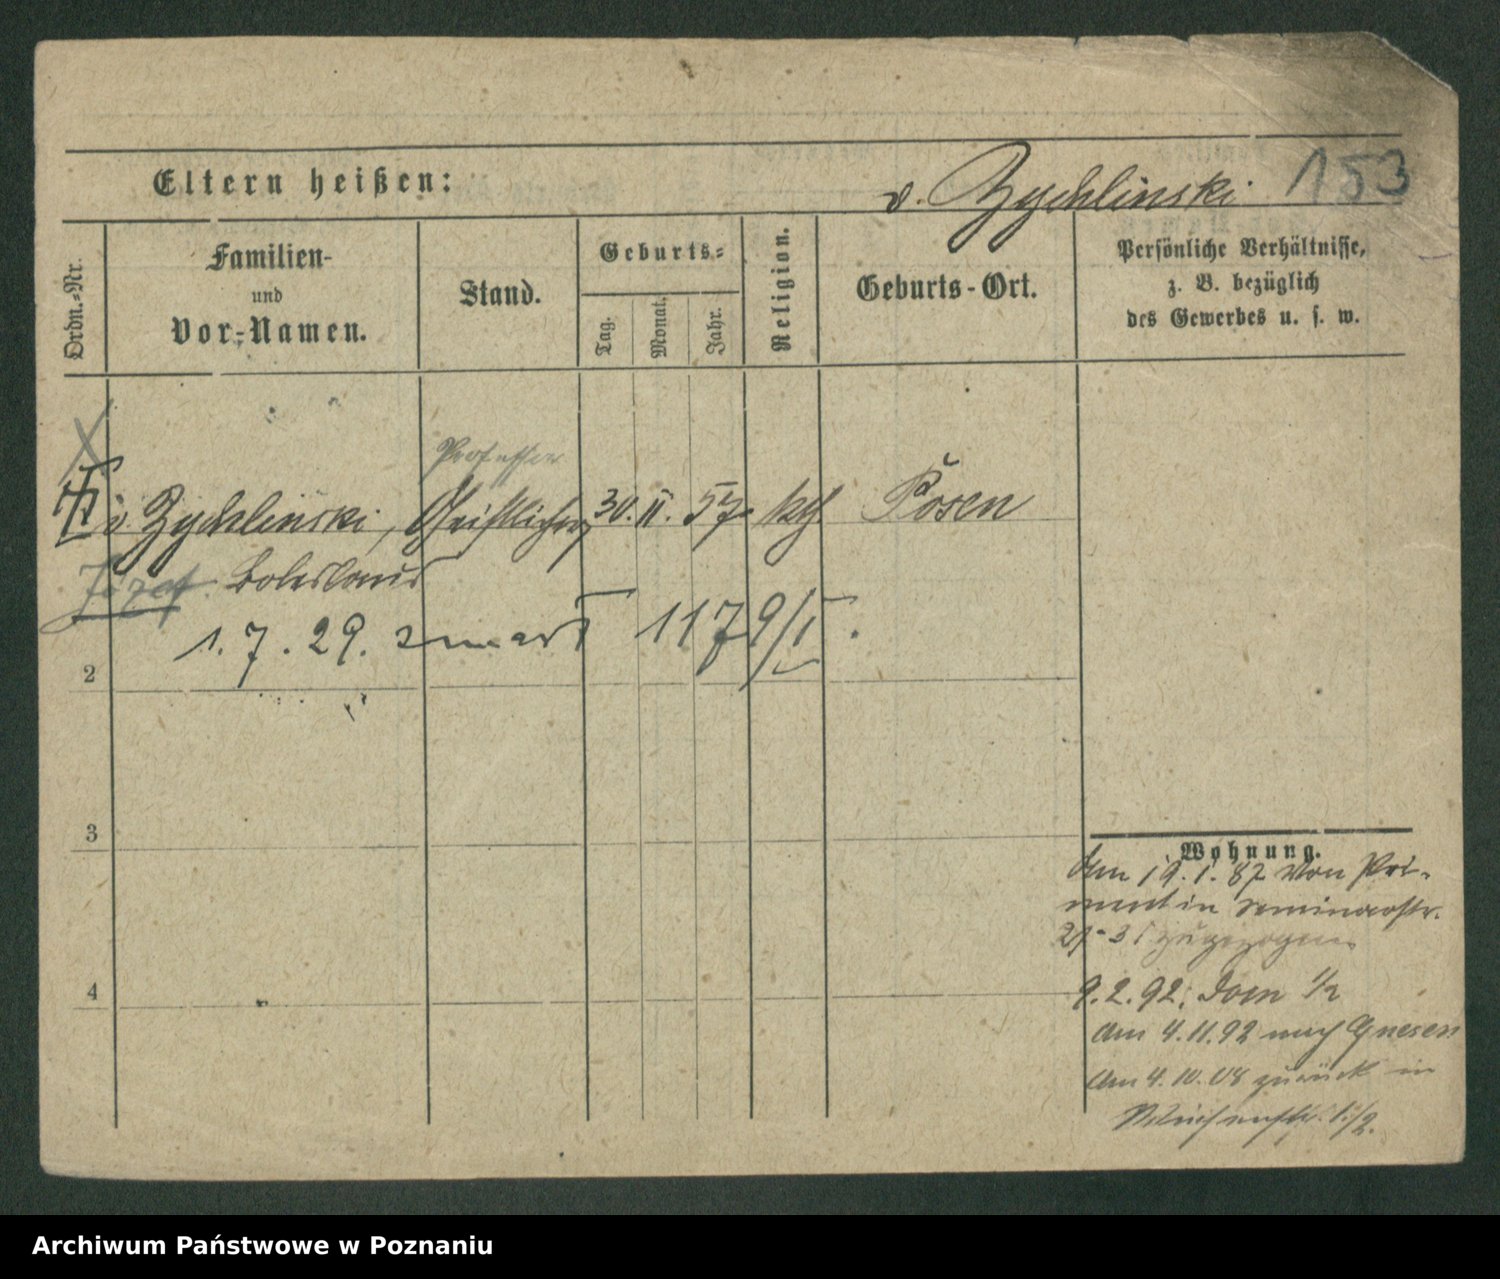 Eltern heißen:
v. Zychlinski 153
Ordn.-Nr.
Familien-
und
Vor-Namen.
Stand.
Geburts-
Tag.
Monat.
Jahr.
Religion.
Geburts-Ort.
Persönliche Verhältnisse,
z. B. bezüglich
des Gewerbes u. s. w.
Professor
v. Zychlinski, Geistlicher 30. II. 57. kth Posen
Józef Boleslaus
1. 7. 29. zmarł 1179/I.
2
3
4
Wohnung.
Am 19.1.87 von Pri-
ment in Seminarstr.
zugezogen
9.2.92. Dom 1/2
Am 4.11.92 nach Gnesen
Am 4.10.08 zurück in
1/2.
Archiwum Państwowe w Poznaniu